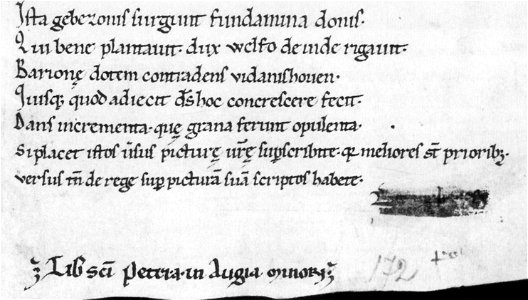 Ista gebezonis surgunt fundamina donis.
Qui bene plantauit. dux welfo deinde rigauit.
Barionę dotem contradens vidanshouen.
Quisq; quod adiecit d̄s hoc concrescere fecit.
Dans incrementa. quę grana ferunt opulenta.
Si placet istos ūsus picturę ur̄ę sup̄scribite. qr meliores st̄ priorib;.
versus tn̄ de rege sup̄ picturā suā scriptos habete.
Lib sc̄i Petri a. in Augia minori
172